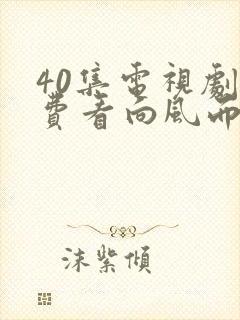 40集電視劇
費看向風而
沫紫傾